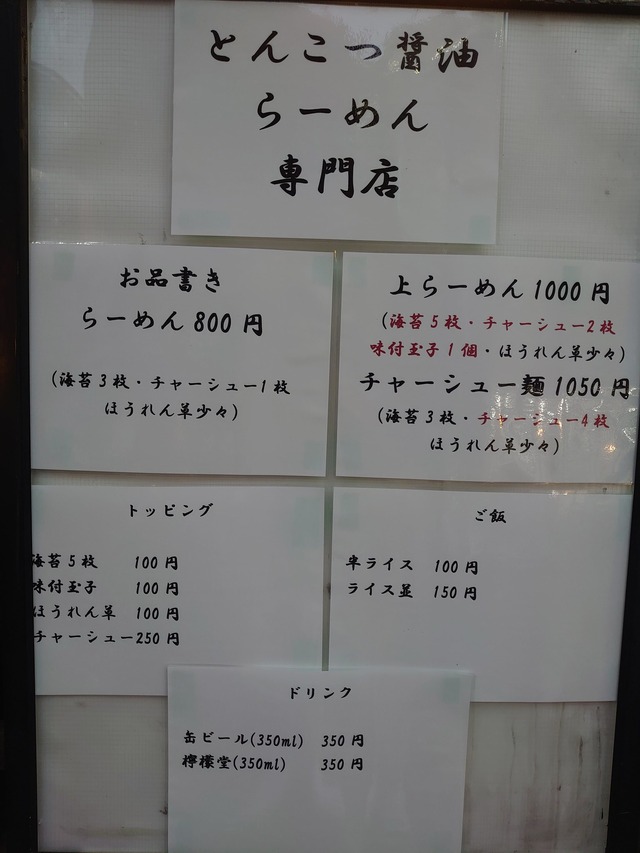 とんこつ醤油
らーめん
専門店
お品書き
らーめん 800 円
(海苔3枚・チャーシュー1枚
ほうれん草少々)
上らーめん 1000 円
(海苔5枚・チャーシュー2枚
味付玉子1個・ほうれん草少々)
チャーシュー麺 1050 円
(海苔3枚・チャーシュー4枚
ほうれん草少々)
トッピング
海苔5枚 100 円
味付玉子 100 円
ほうれん草 100 円
チャーシュー250 円
ご飯
半ライス 100 円
ライス並 150 円
ドリンク
缶ビール(350ml) 350 円
檸檬堂(350ml) 350 円